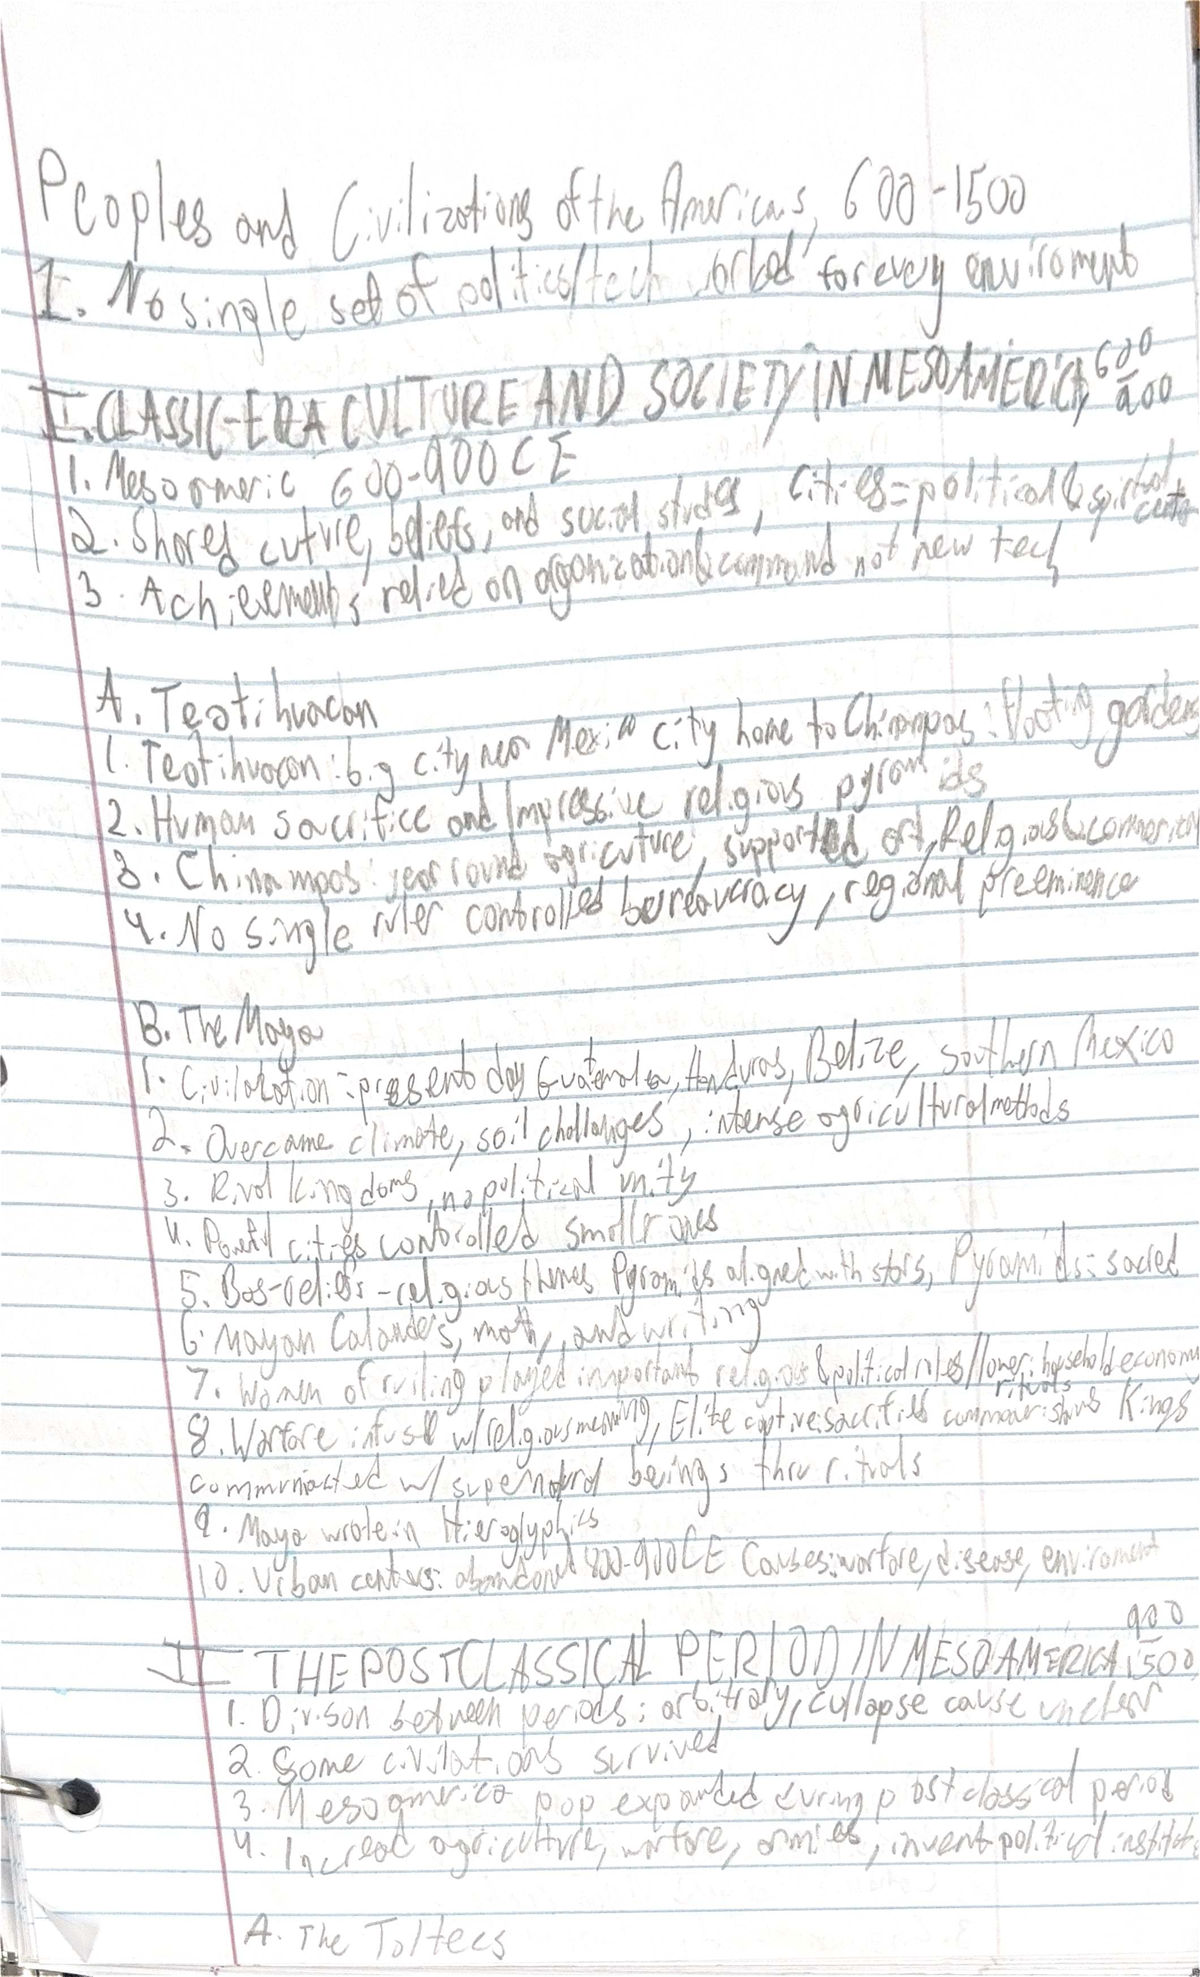 Peoples and Civilizations of the Americas, 600-1500
1. No single set of politics/tech worked for every enviroment
I. CLASSIC-ERA CULTURE AND SOCIETY IN MESOAMERICA, 600-900
1. Mesoormeric 600-900 CE
2. Shared cuture, beliefs, and social studes, Cities=political & spiritual
3. Achievements relied on organization & command not new tech
A. Teotihuacan
1. Teotihuacan: big city near Mexico city home to Chinampas: floating gardens
2. Human sacrifice and Impressive religious pyramids
3. Chinampas: year round agricuture, supported art, Religious & commericial
4. No single ruler controlled bureaucracy, regional preeminence
B. The Maya
1. Civilazation = present day Guatemala, Honduras, Belize, southern Mexico
2. Overcame climate, soil challanges, intense agricultural methods
3. Rival kingdoms, no political unity
4. Powerful cities controlled smaller ones
5. Bas-reliefs - religious themes Pyramids aligned with stars, Pyramids: sacred
6. Mayan Calanders, math, and writing
7. Women of ruiling played important religious & political roles/lower: household economy
8. Warfare infused w/religious meaning, Elite captive sacrifies rituals Kings
communicated w/ supernatural beings thru rituals
9. Maya wrote in Hieroglyphics
10. Urban centers: abandoned 800-900CE Causes: warfare, disease, enviroment
II THE POSTCLASSICAL PERIOD IN MESOAMERICA 900-1500
1. Divison between periods: arbitraly, cullapse cause unclear
2. Some civilations survived
3. Mesoamerica pop expanded during postclassical period
4. Incread agriculture, warfare, armies, invent political
A. The Toltecs